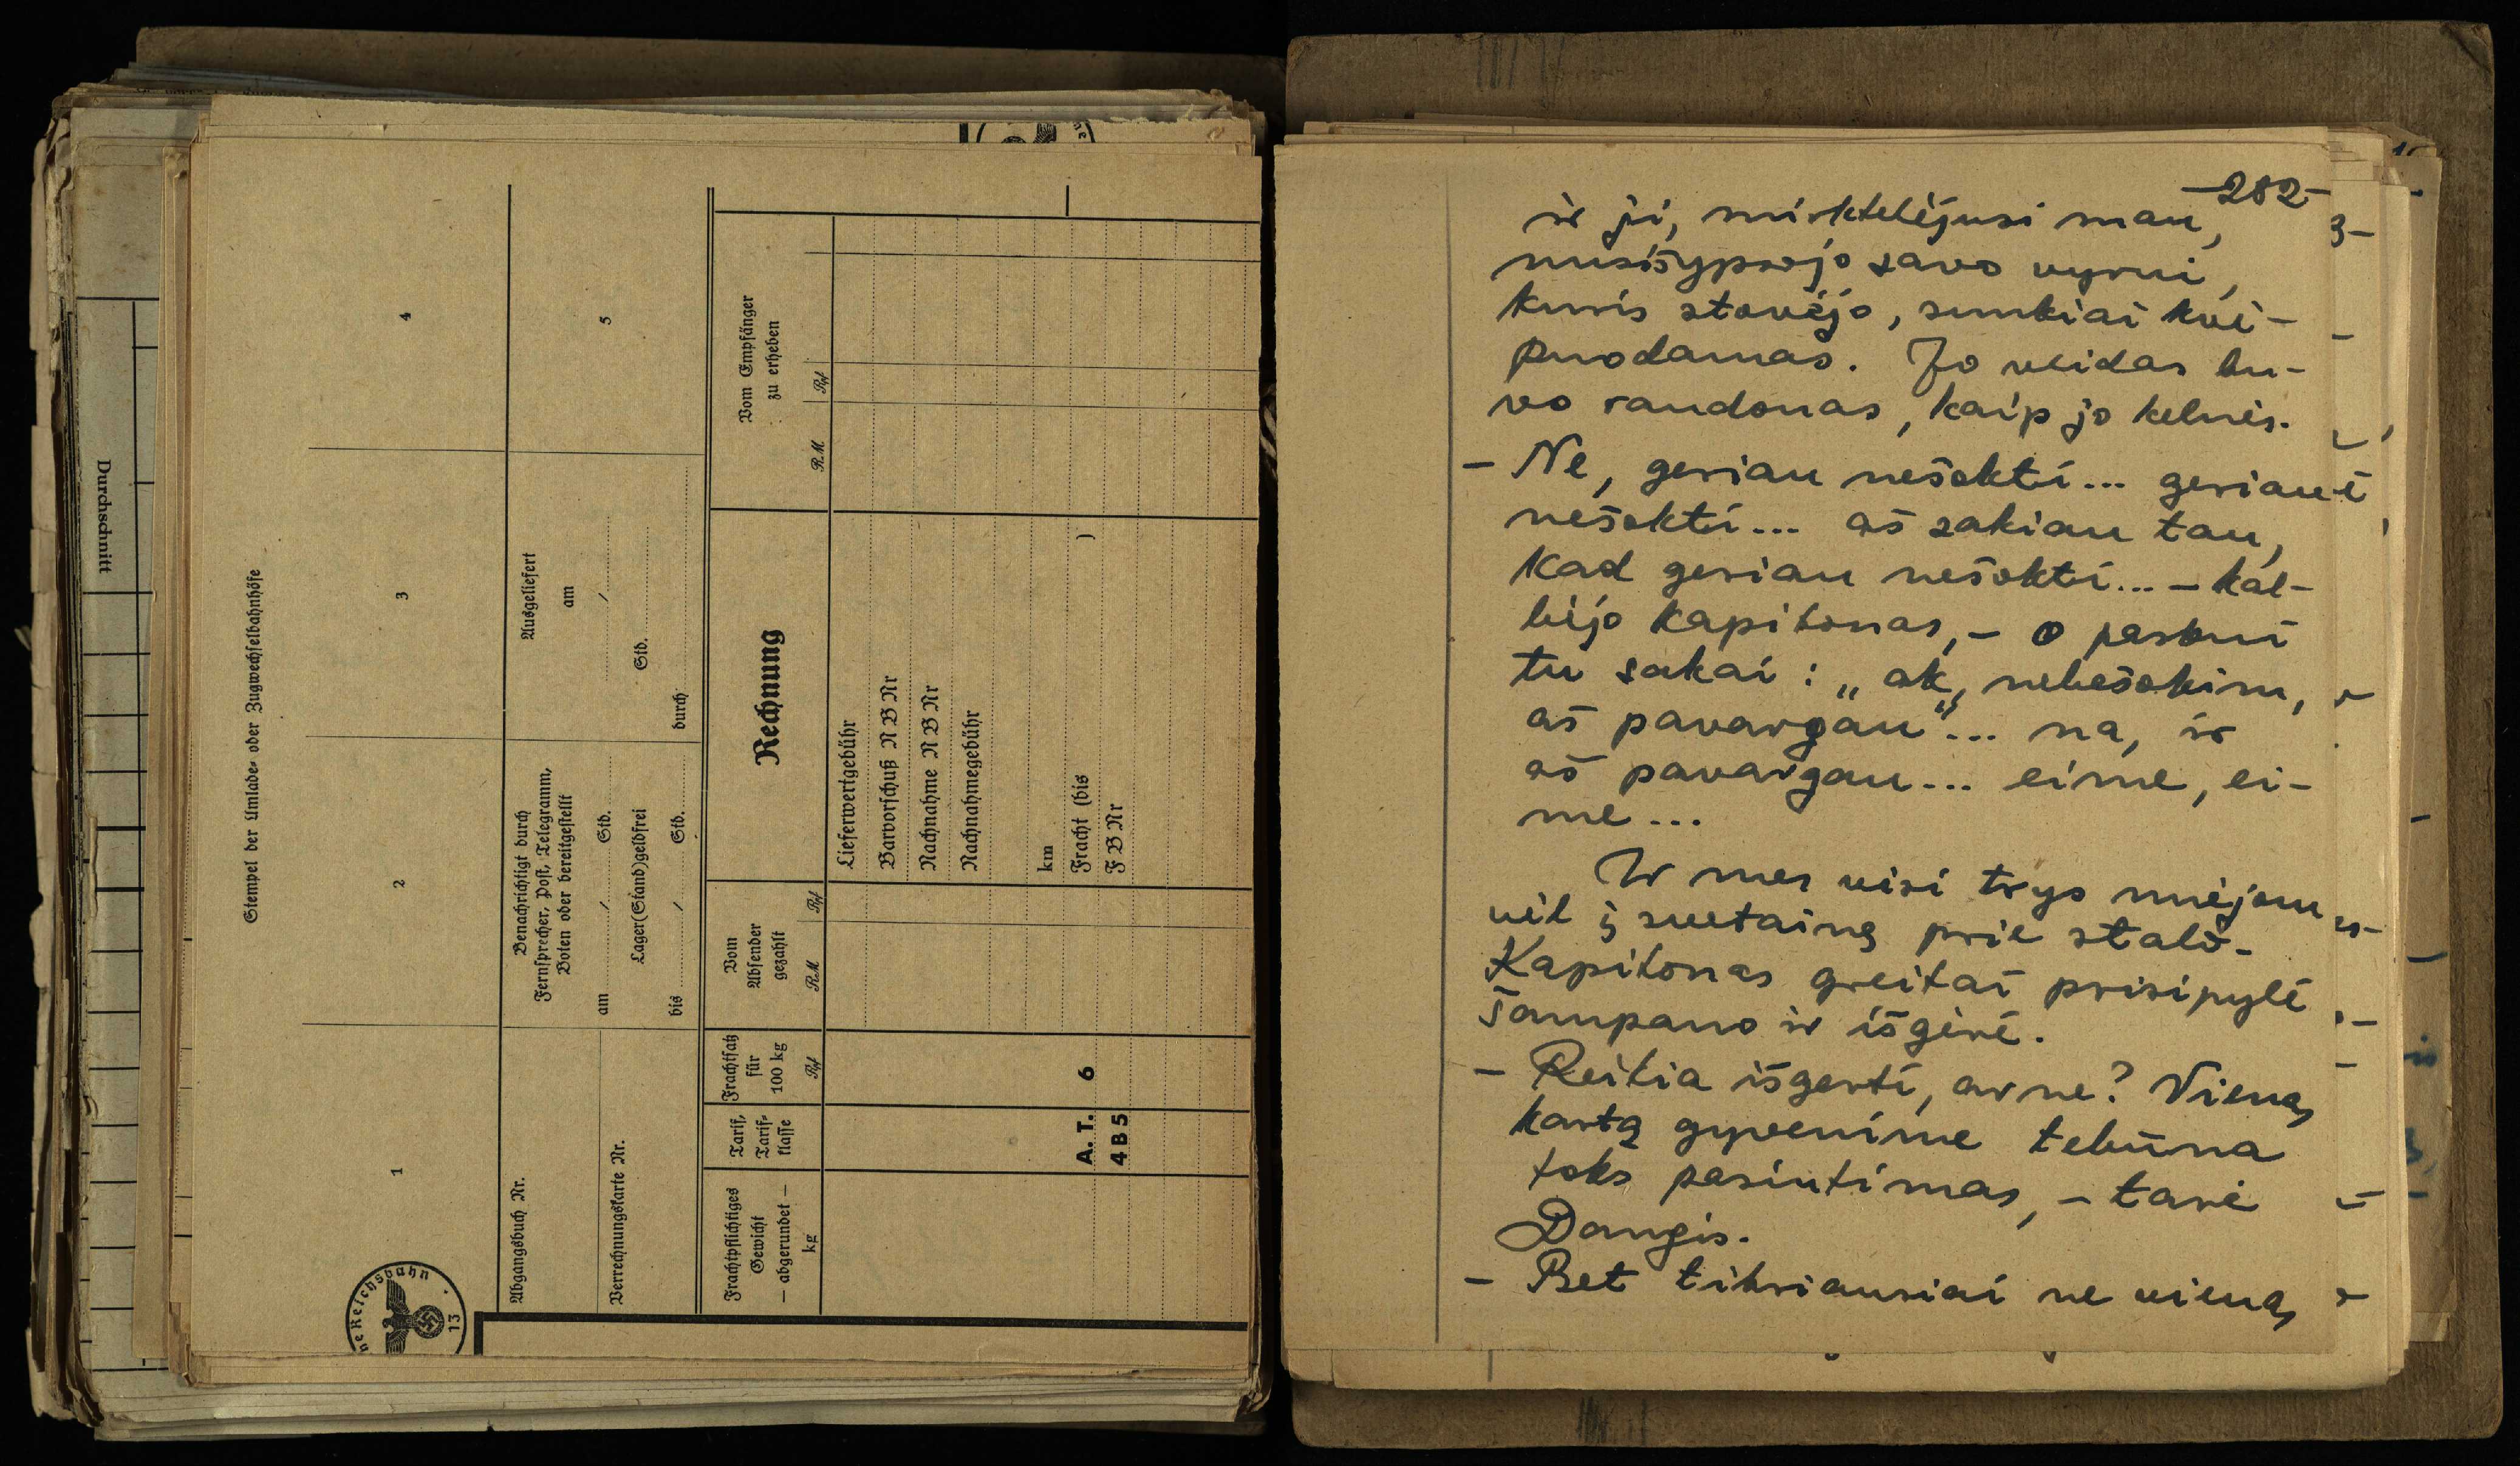 Durchschnitt
Stempel der Umlade- oder Zugwechselbahnhöfe
1
2
3
4
Abgangsbuch Nr.
Verrechnungskarte Nr.
Benachrichtigt durch
Fernsprecher, Post, Telegramm,
Boten oder bereitgestellt
am / Std.
Lager(Stand)geldfrei
bis / Std.
Ausgeliefert
am
/
Std.
durch
5
Frachtpflichtiges
Gewicht
— abgerundet —
kg
Tarif,
Tarif-
klasse
Frachtsatz
für
100 kg
Rpf
Vom
Absender
gezahlt
RM Rpf
Rechnung
Vom Empfänger
zu erheben
RM Rpf
Lieferwertgebühr
Barvorschuß N B Nr
Nachnahme N B Nr
Nachnahmegebühr
km
A. T. 6 Fracht (bis )
4 B 5 F B Nr
ne Reichsbahn
13
-282-
ir ji, mirktelėjusi man,
nusišypsojo savo vyrui,
kuris stovėjo, sunkiai kvė-
puodamas. Jo veidas bu-
vo raudonas, kaip jo kelnės.
- Ne, geriau nešokti... geriau
nešokti... aš sakiau tau,
kad geriau nešokti... - kal-
bėjo kapitonas, - o paskui
tu sakai: „ak, nebešokim,
aš pavargau"... na, ir
aš pavargau... eime, ei-
me...
Ir mes visi trys nuėjom
vėl į svetainę prie stalo.
Kapitonas greitai prisipylė
šampano ir išgėrė.
- Reikia išgerti, ar ne? Vieną
kartą gyvenime tebūna
toks pasiutimas, - tarė
Dangis.
- Bet tikriausiai ne vieną